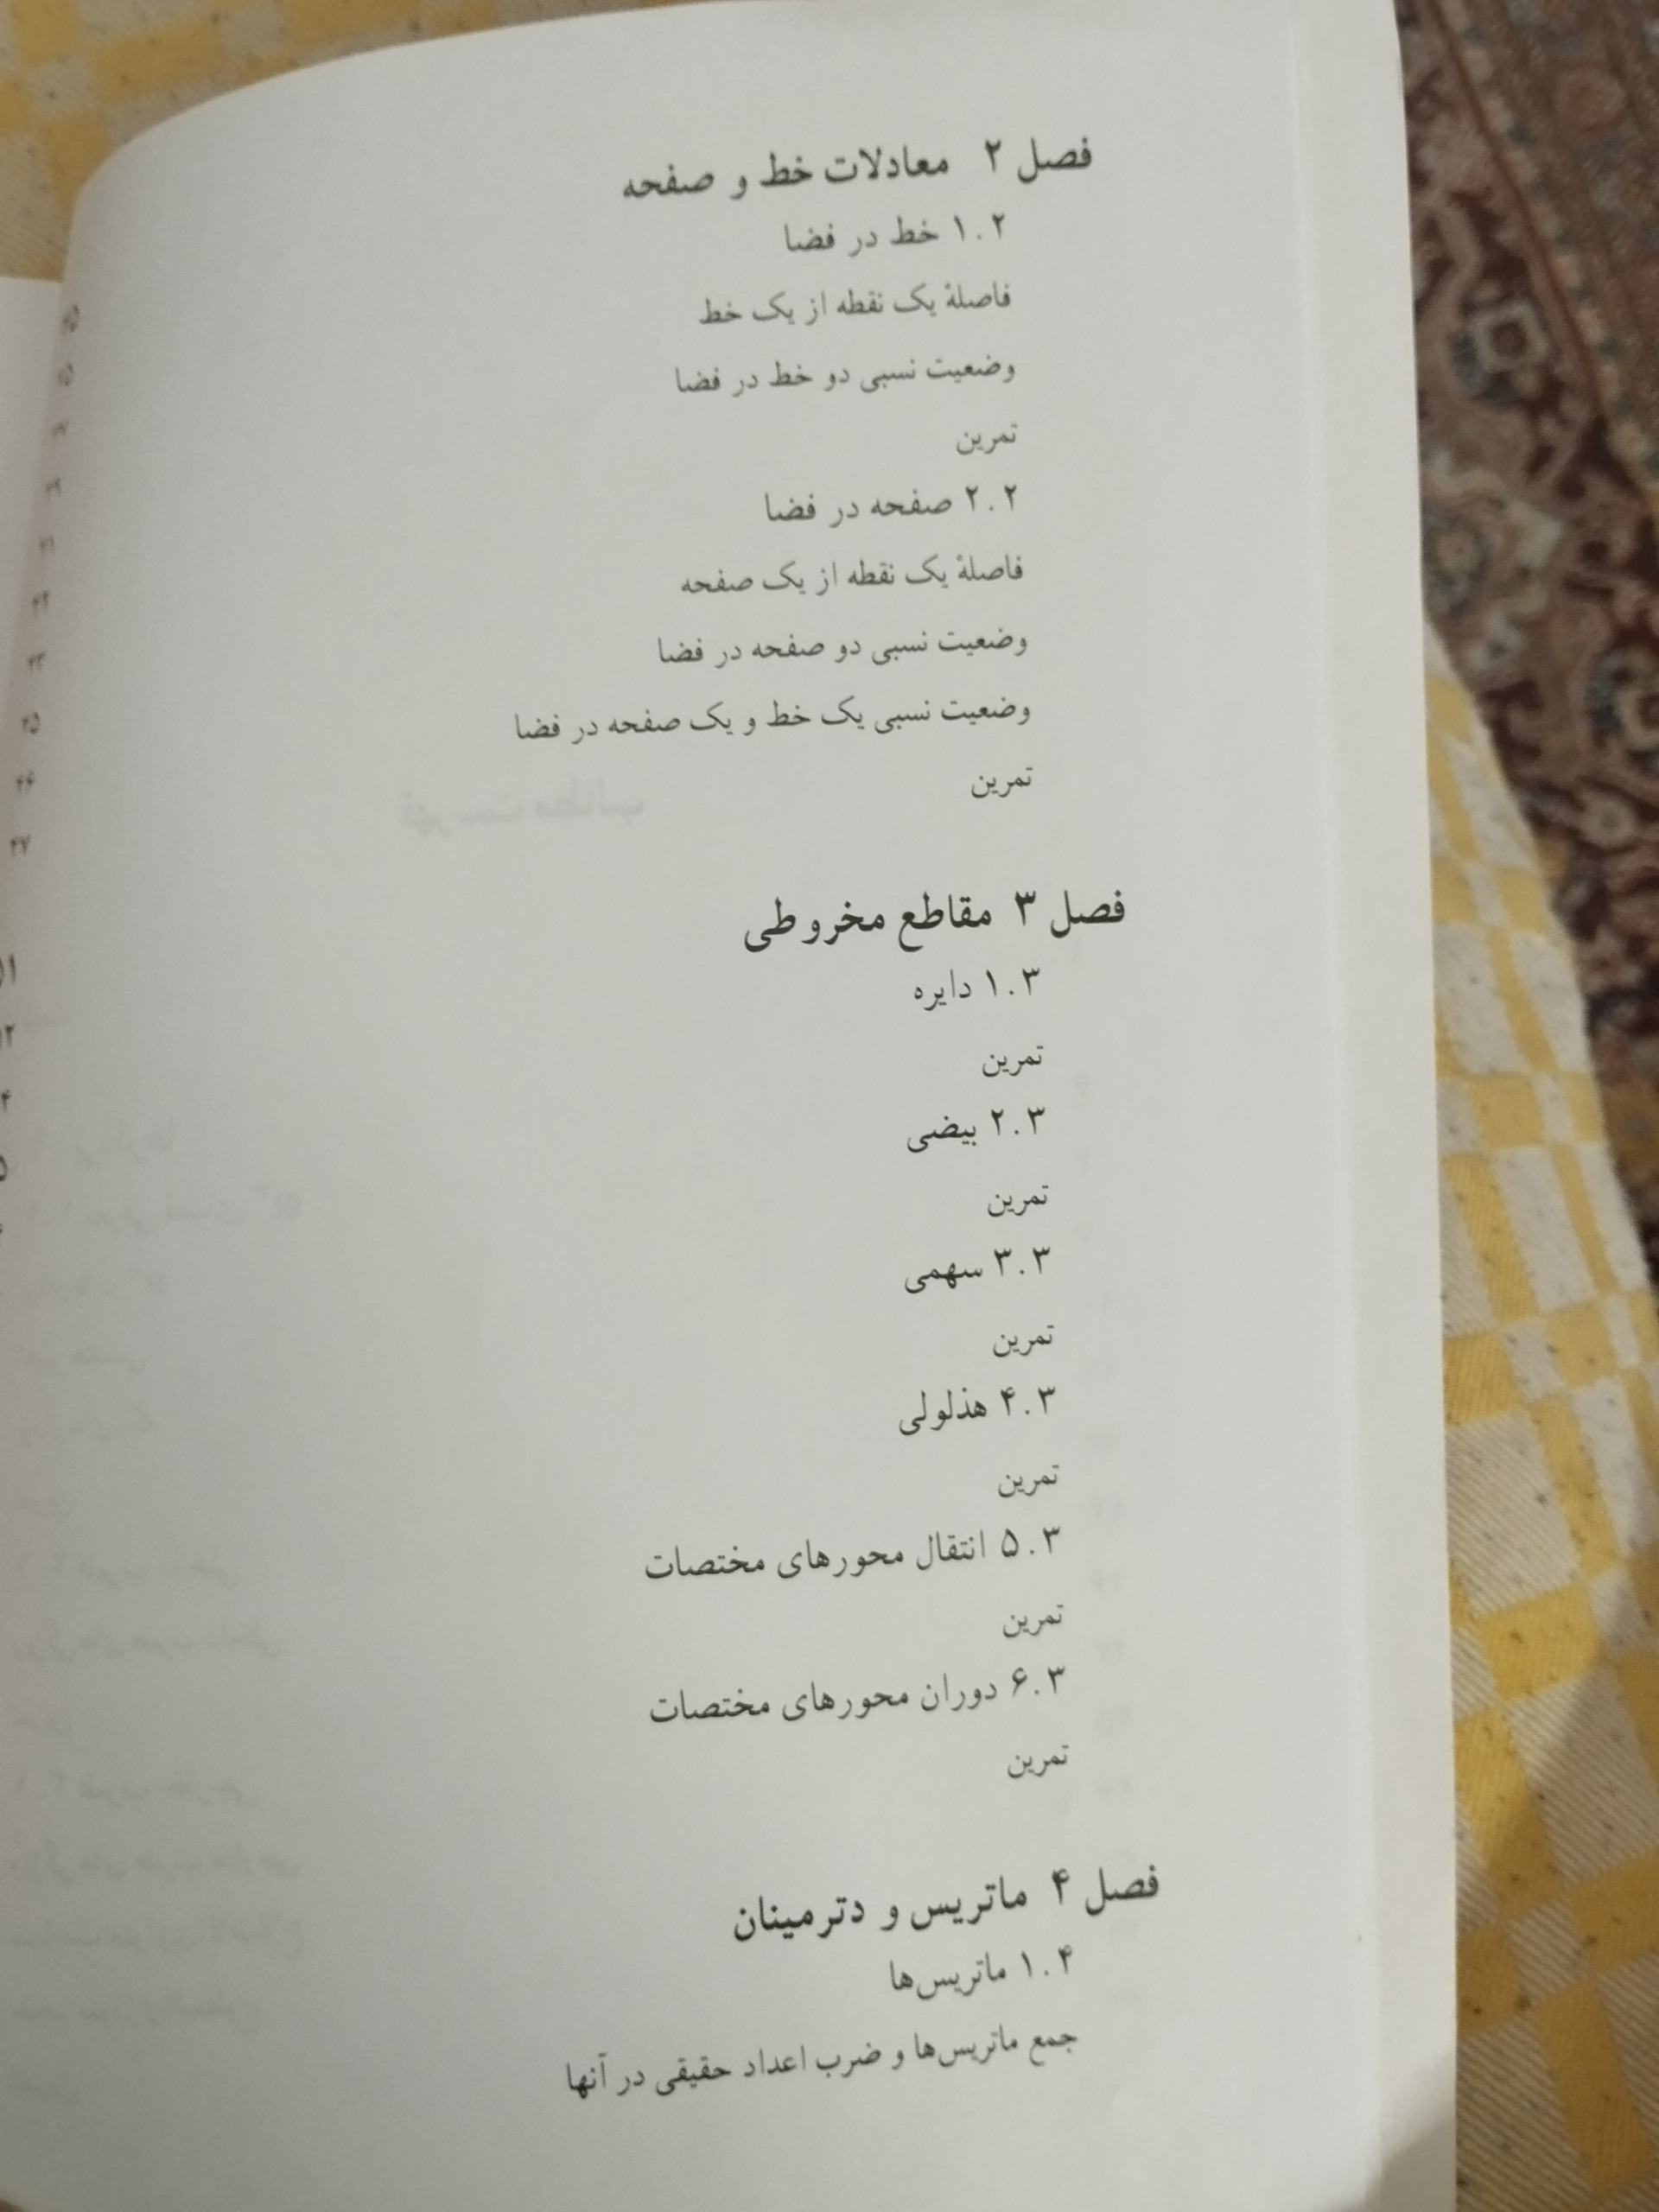 فصل ۲ معادلات خط و صفحه
۱.۲ خط در فضا
فاصلهٔ یک نقطه از یک خط
وضعیت نسبی دو خط در فضا
تمرین
۲.۲ صفحه در فضا
فاصلهٔ یک نقطه از یک صفحه
وضعیت نسبی دو صفحه در فضا
وضعیت نسبی یک خط و یک صفحه در فضا
تمرین
فصل ۳ مقاطع مخروطی
۱.۳ دایره
تمرین
۲.۳ بیضی
تمرین
۳.۳ سهمی
تمرین
۴.۳ هذلولی
تمرین
۵.۳ انتقال محورهای مختصات
تمرین
۶.۳ دوران محورهای مختصات
تمرین
فصل ۴ ماتریس و دترمینان
۱.۴ ماتریس‌ها
جمع ماتریس‌ها و ضرب اعداد حقیقی در آنها